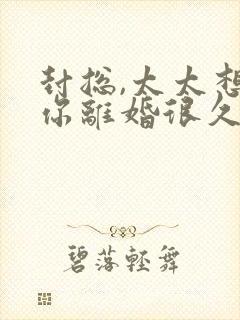 封总,太太想
你離婚很久
碧落輕舞